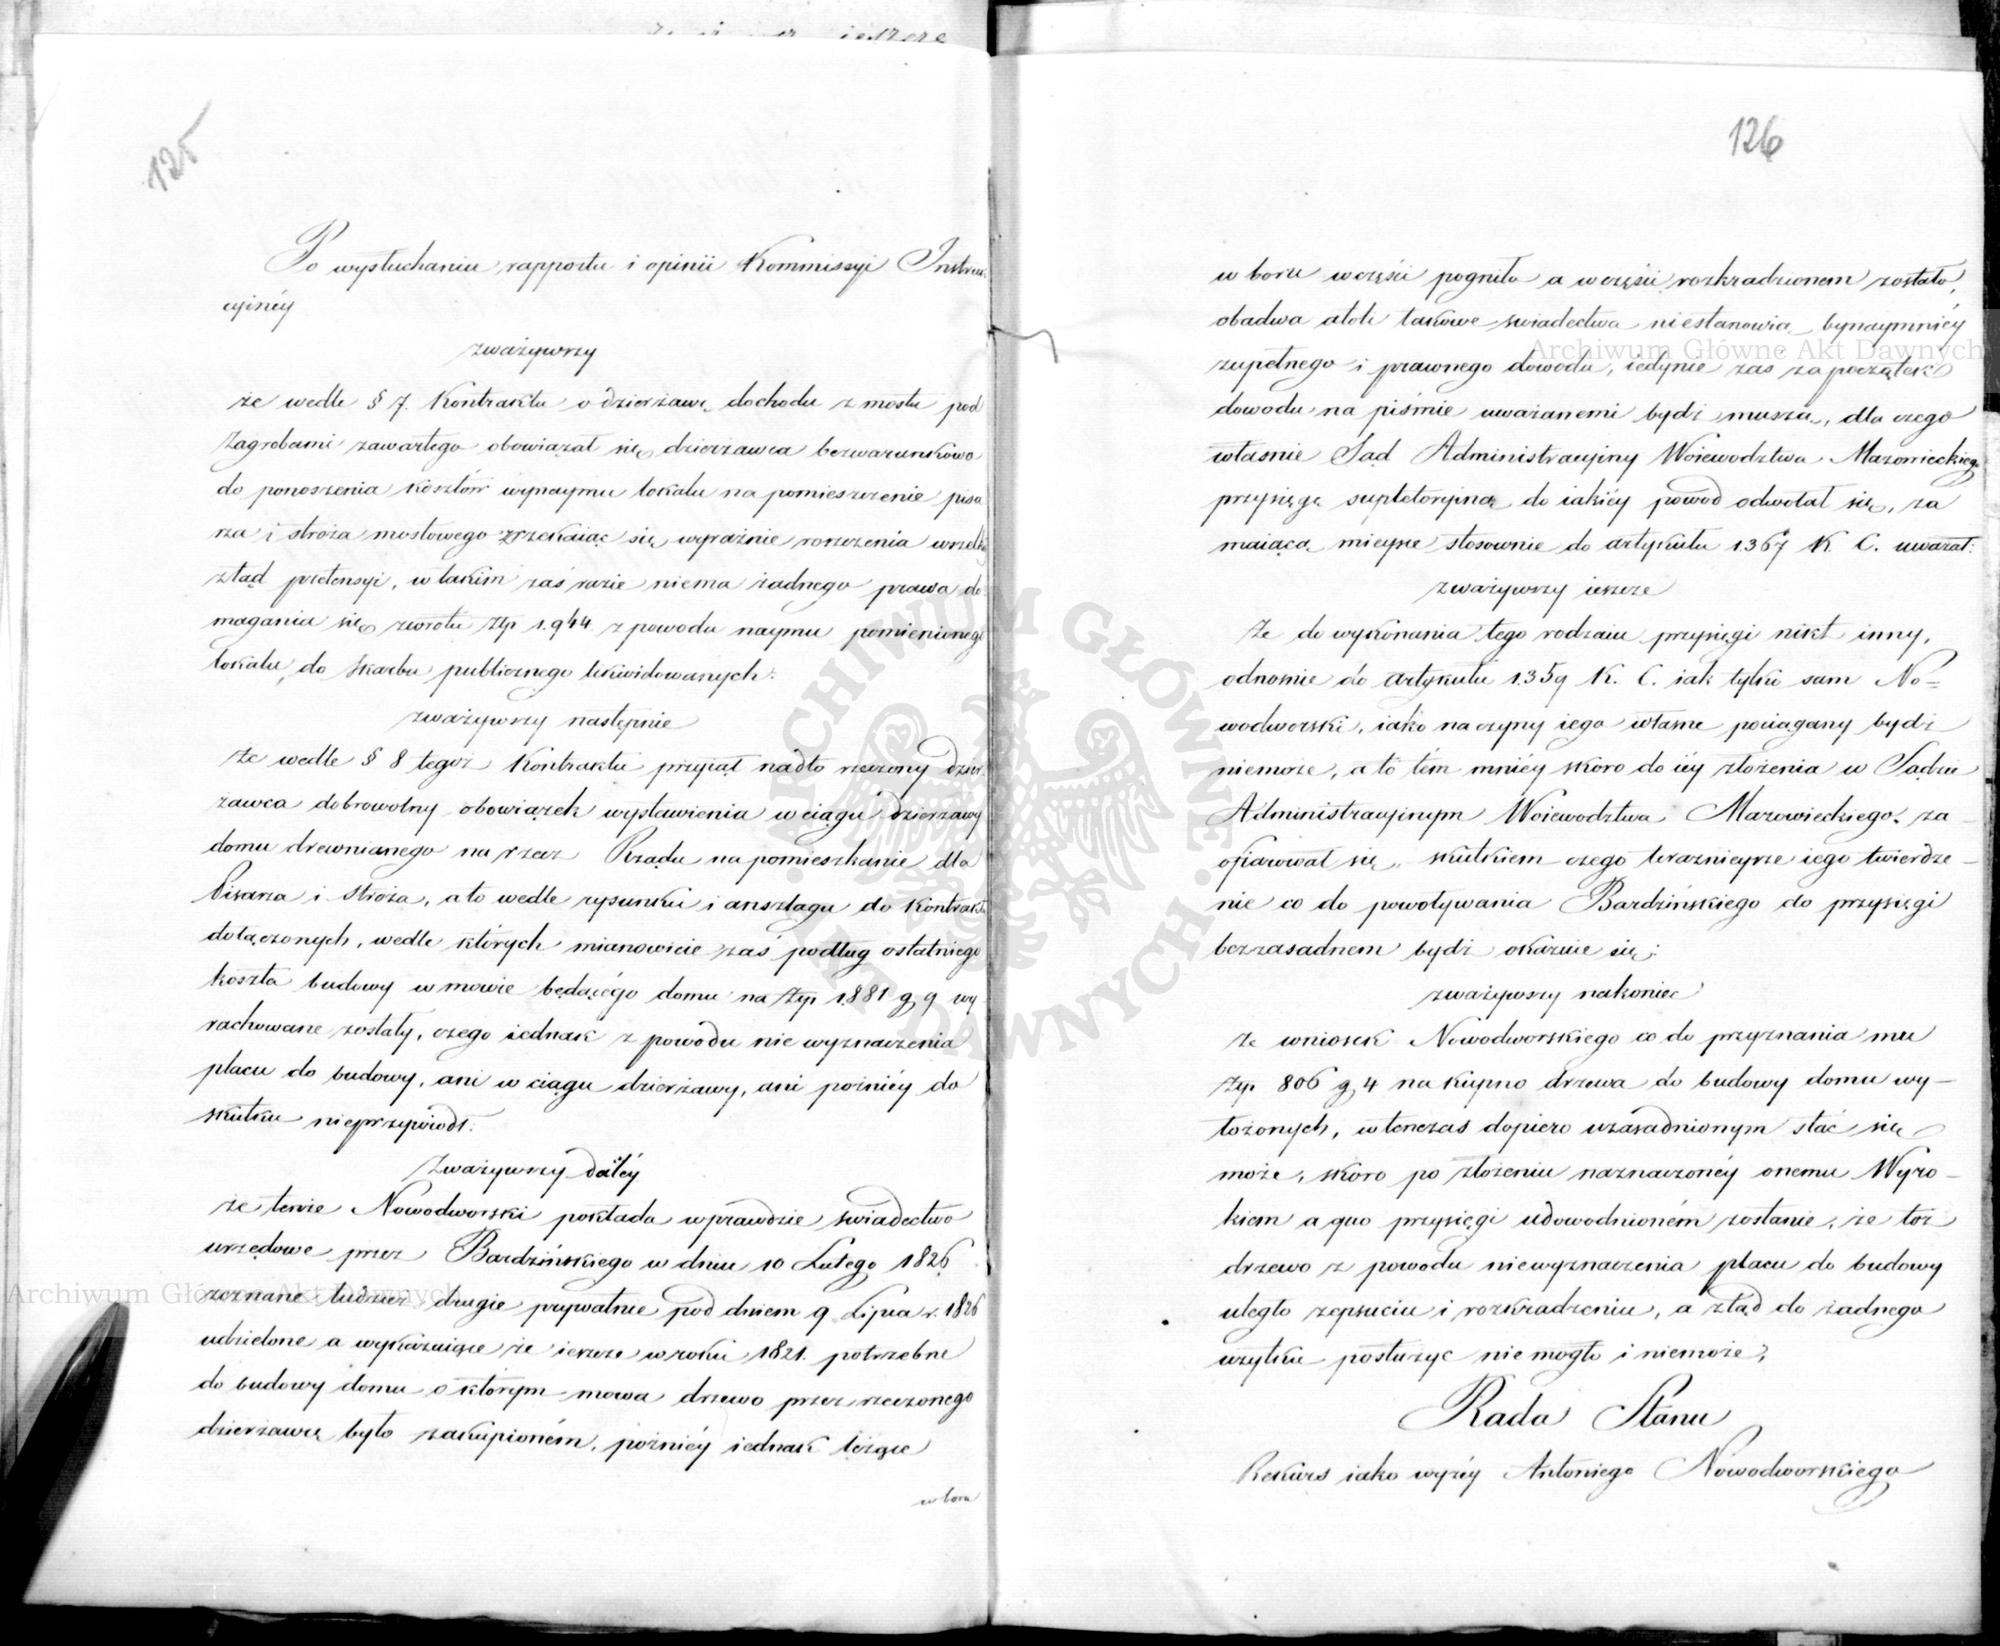 125
Po wysłuchaniu rapportu i opinii Kommissyi Instruk-
cyinéy
zważywszy
że wedle § 7. Kontraktu o dzierżawę dochodu z mostu pod
Zagrobami zawartego obowiązał się dzierżawca bezwarunkowo
do ponoszenia kosztów wynaymu lokalu na pomieszczenie pisa
rza i stróża mostowego zrzekaiąc się wyraźnie roszczenia wszelk
ztąd pretensyi, w takim zaś razie niema żadnego prawa do-
magania się zwrotu złp 1.944. z powodu naymu pomienionego
lokalu do skarbu publicznego likwidowanych:
zważywszy następnie
że wedle § 8 tegoż Kontraktu przyiął nadto rzeczony dzier
żawca dobrowolny obowiązek wystawienia w ciągu dzierżawy
domu drewnianego na rzecz Rządu na pomieszkanie dla
Pisarza i stróża, a to wedle rysunku i anszlagu do Kontraktu
dołączonych, wedle których mianowicie zaś podług ostatniego
koszta budowy w mowie będącego domu na złp 1,881 g. 9 wy-
rachowane zostały, czego iednak z powodu nie wyznaczenia
placu do budowy, ani w ciągu dzierżawy, ani pożniéy do
skutku nieprzywiódł.
Zważywszy daléy
że tenże Nowodworski pokłada wprawdzie świadectwo
urzędowe przez Bardzińskiego w dniu 10 Lutego 1826
zeznane tudzież drugie prywatnie pod dniem 9 Lipca r. 1826
udzielone a wykazuiące że ieszcze w roku 1821. potrzebne
do budowy domu o którym mowa drzewo przez rzeczonego
dzierżawcę było zakupioném, pożniéy iednak leżąc
w boru
126
w boru w części pogniło a w części rozkradzionem zostało,
obadwa atoli takowe świadectwa niestanowią bynaymniéy
zupełnego i prawnego dowodu, iedynie zaś za początek
dowodu na piśmie uważanemi bydź muszą, dla czego
własnie Sąd Administracyiny Woiewodztwa Mazowieckiego
przysięgę supletoryiną do iakiéy powod odwołał się, za
maiącą mieysce stosownie do artykułu 1367 K. C. uważał:
zważywszy ieszcze
Że do wykonania tego rodzaiu przysięgi nikt inny,
odnośnie do artykułu 1359 K. C. iak tylko sam No=
wodworski, iako na czyny iego własne pociągany bydź
niemoże, a to tém mniéy skoro do iéy złożenia w Sądzie
Administracyinym Woiewodztwa Mazowieckiego za-
ofiarował się, skutkiem czego teraznieysze iego twierdze-
nie co do powoływania Bardzińskiego do przysięgi
bezzasadnem bydź okazuie się:
zważywszy nakoniec
że wniosek Nowodworskiego co do przyznania mu
złp. 806 g. 4 na kupno drzewa do budowy domu wy-
łożonych, wtenczas dopiero uzasadnionym stać się
może, skoro po złożeniu naznaczonéy onemu Wyro-
kiem a quo przysięgi udowodnioném zostanie, że toż
drzewo z powodu niewyznaczenia placu do budowy
uległo zepsuciu i rozkradzeniu, a ztąd do żadnego
użytku posłużyć nie mogło i niemoże,
Rada Stanu
Rekurs iako wyżéy Antoniego Nowodworskiego
Archiwum Główne Akt Dawnych
Archiwum Główne Akt Dawnych
ARCHIWUM GŁÓWNE AKT DAWNYCH